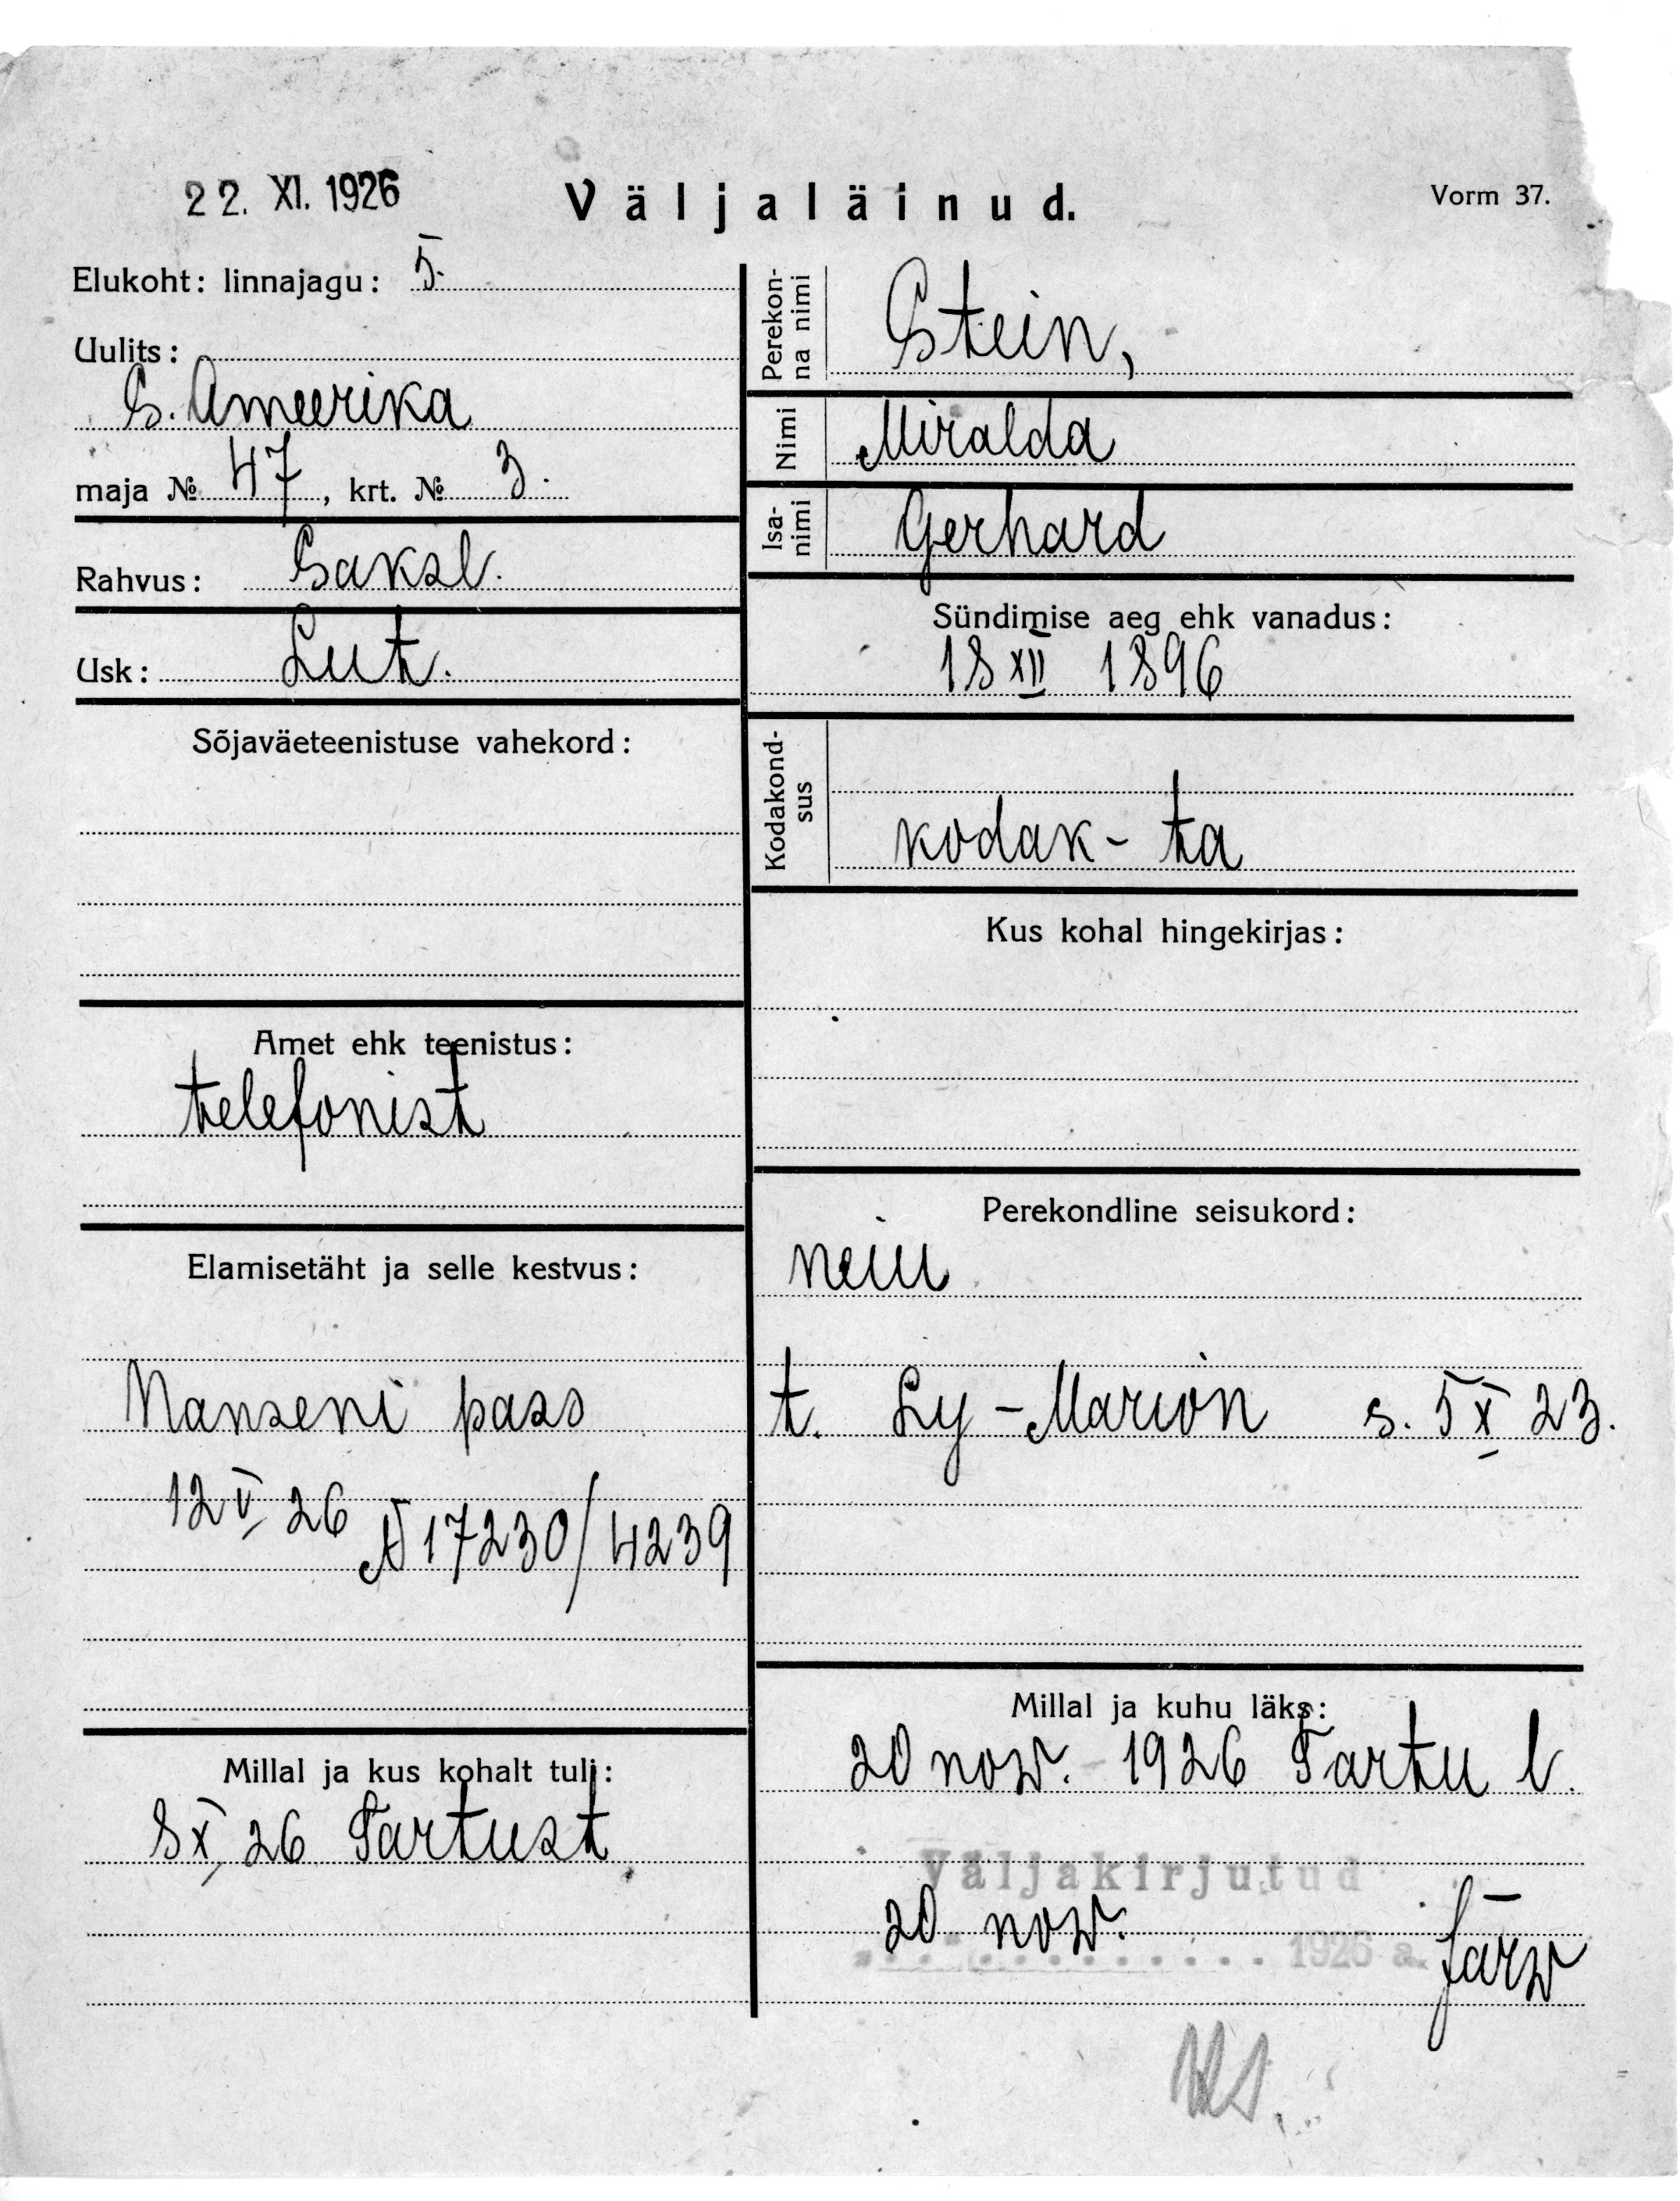 22. XI. 1926
Väljaläinud.
Vorm 37.
Elukoht: linnajagu: 5.
Uulits:
S. Ameerika
maja № 47, krt. № 3.
Rahvus: Saksl.
Usk: Lut.
Sõjaväeteenistuse vahekord:
Amet ehk teenistus:
telefonist
Elamisetäht ja selle kestvus:
Nanseni pass
12 V 26
№ 17230/4239
Millal ja kus kohalt tuli:
8 X 26 Tartust
Perekon-
na nimi
Stein,
Nimi
Miralda
Isa-
nimi
Gerhard
Sündimise aeg ehk vanadus:
18 XII 1896
Kodakond-
sus
kodak-ta
Kus kohal hingekirjas:
Perekondline seisukord:
neiu
t. Ly-Marion s. 5 X 23.
Millal ja kuhu läks:
20 now. 1926 Tartu l.
Väljakirjutud
20 now.
1926 a.
Järw